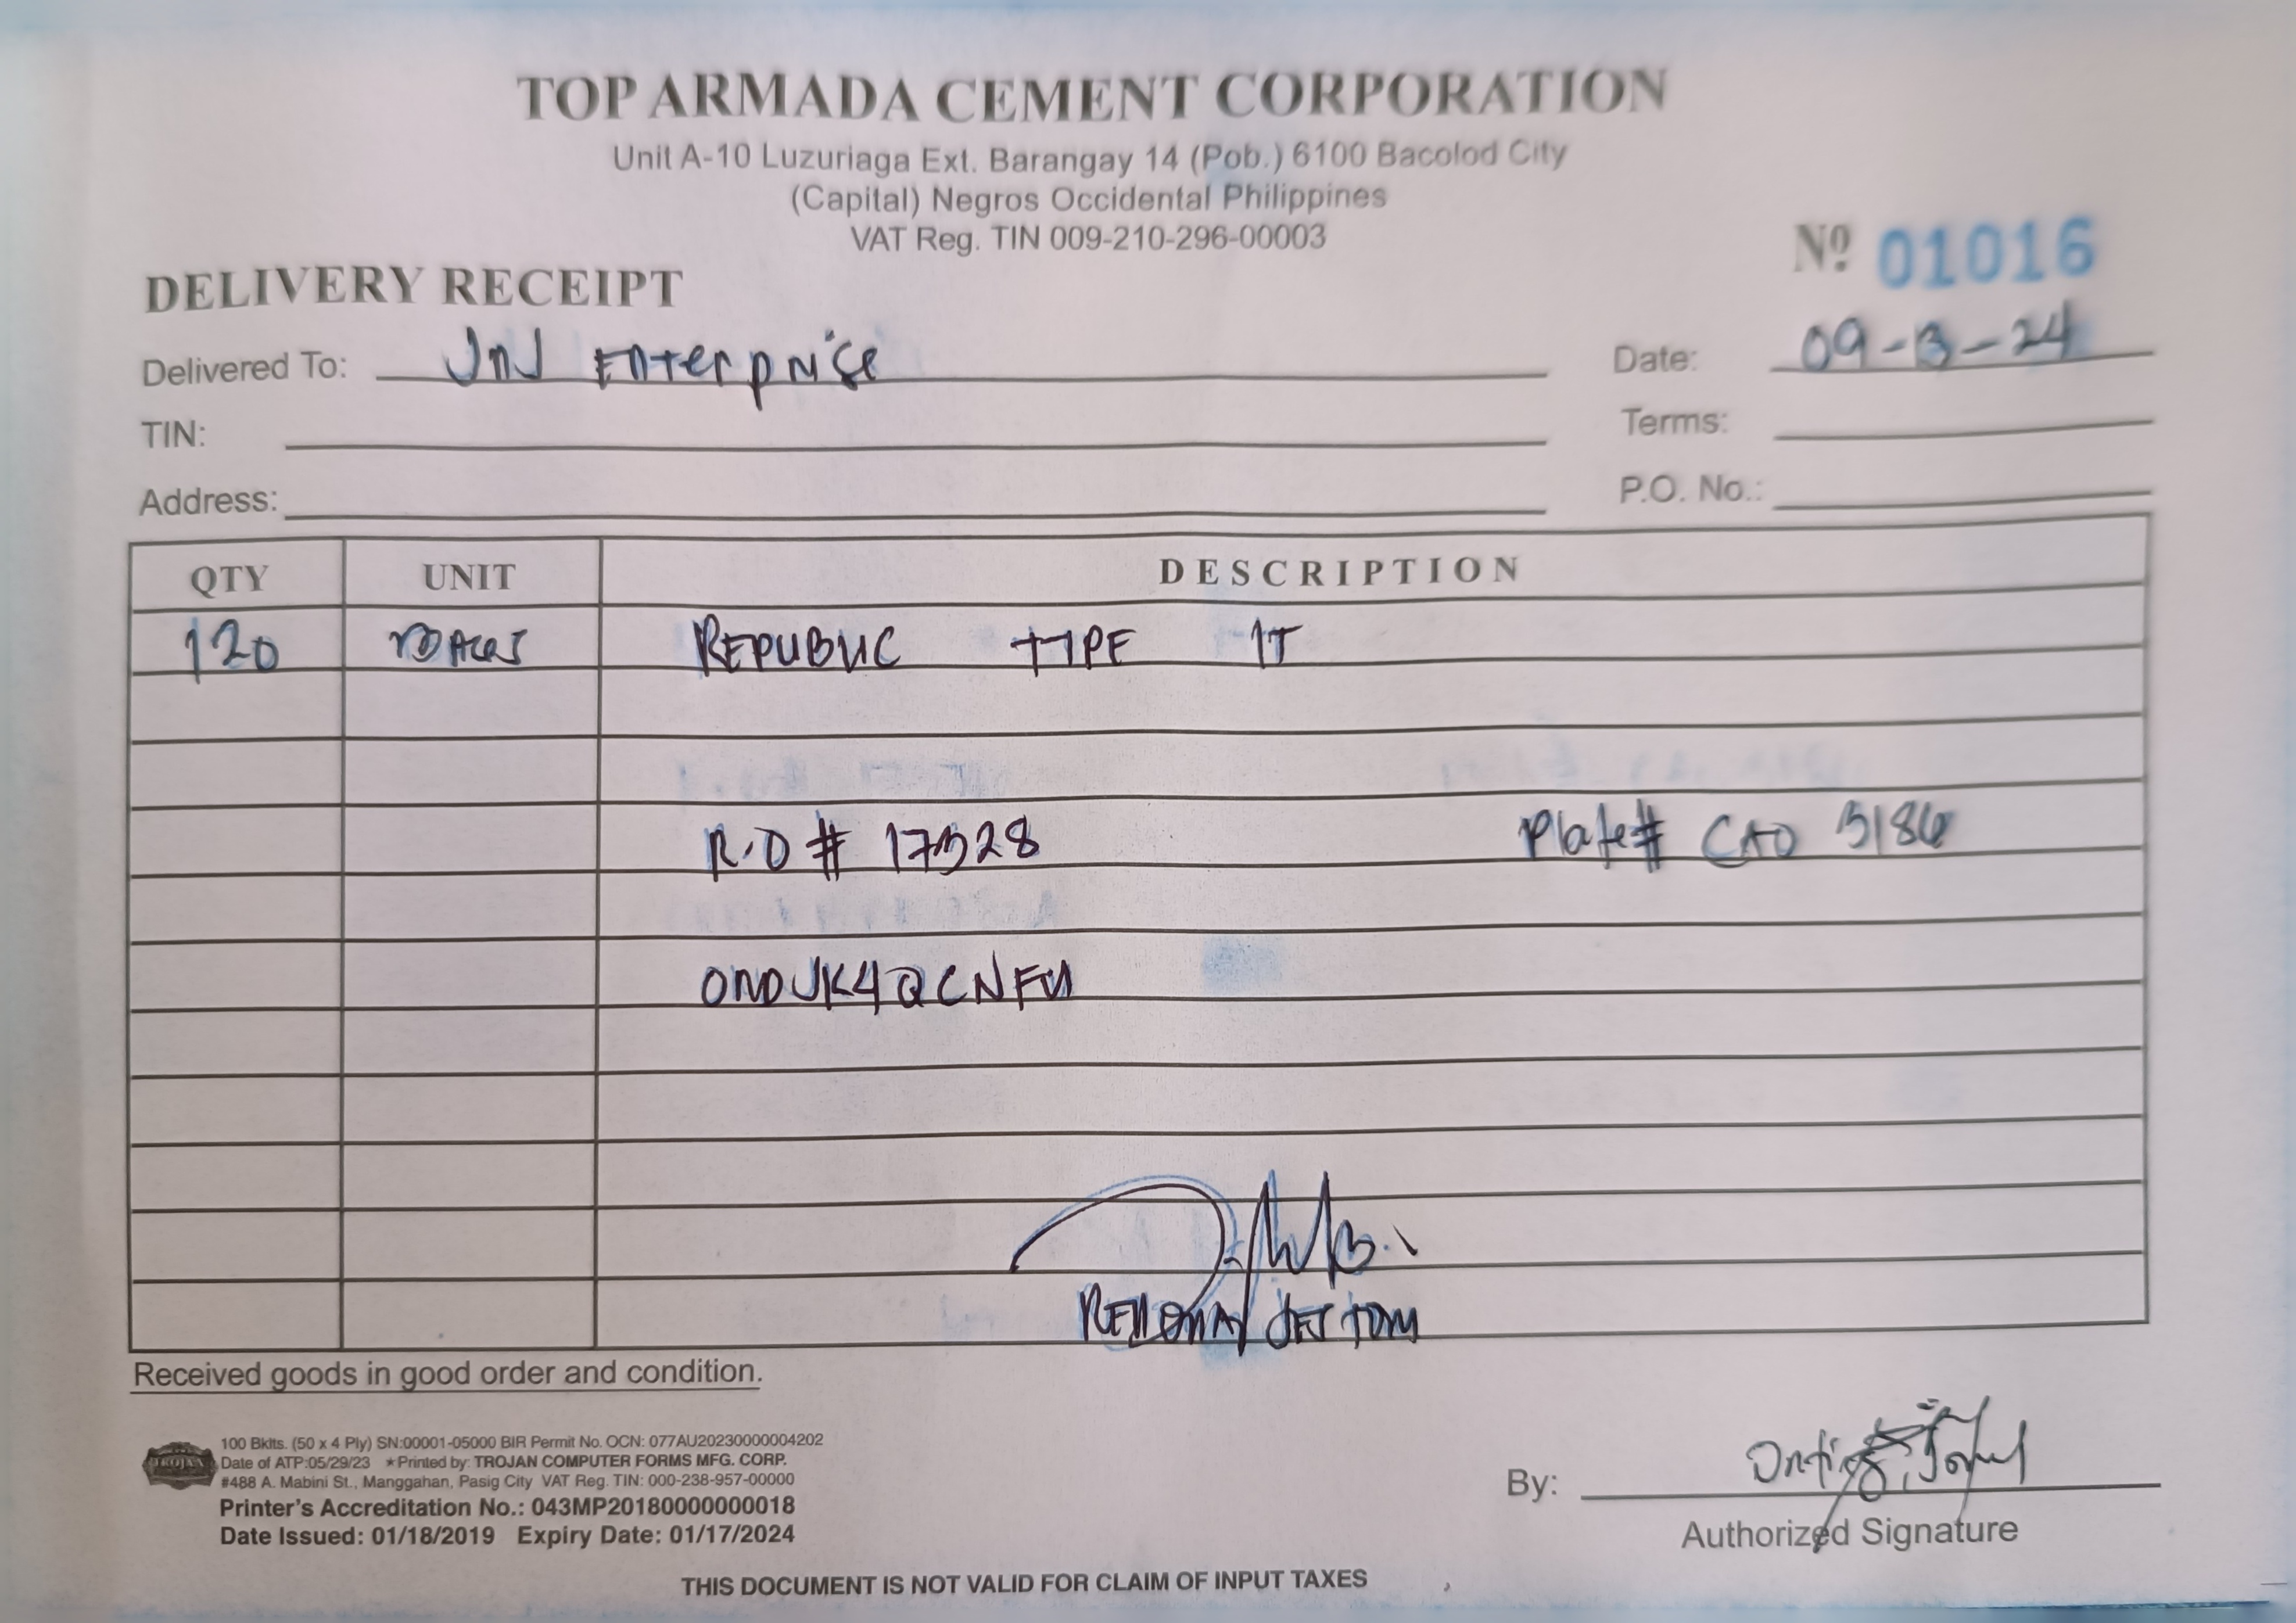 TOP ARMADA CEMENT CORPORATION
Unit A-10 Luzuriaga Ext. Barangay 14 (Pob.) 6100 Bacolod City
(Capital) Negros Occidental Philippines
VAT Reg. TIN 009-210-296-00003
Nº 01016
DELIVERY RECEIPT
Delivered To: JNJ Enterprise Date: 09-13-24
TIN: Terms:
Address: P.O. No.:
QTY UNIT DESCRIPTION
120 REPUBLIC TYPE 1T
R.O # 17328 Plate# CAO 5186
Received goods in good order and condition.
TROJAN
100 Bklts. (50 x 4 Ply) SN:00001-05000 BIR Permit No. OCN: 077AU20230000004202
Date of ATP:05/29/23 ★Printed by: TROJAN COMPUTER FORMS MFG. CORP.
#488 A. Mabini St., Manggahan, Pasig City VAT Reg. TIN: 000-238-957-00000
Printer's Accreditation No.: 043MP20180000000018
Date Issued: 01/18/2019 Expiry Date: 01/17/2024
By:
Authorized Signature
THIS DOCUMENT IS NOT VALID FOR CLAIM OF INPUT TAXES